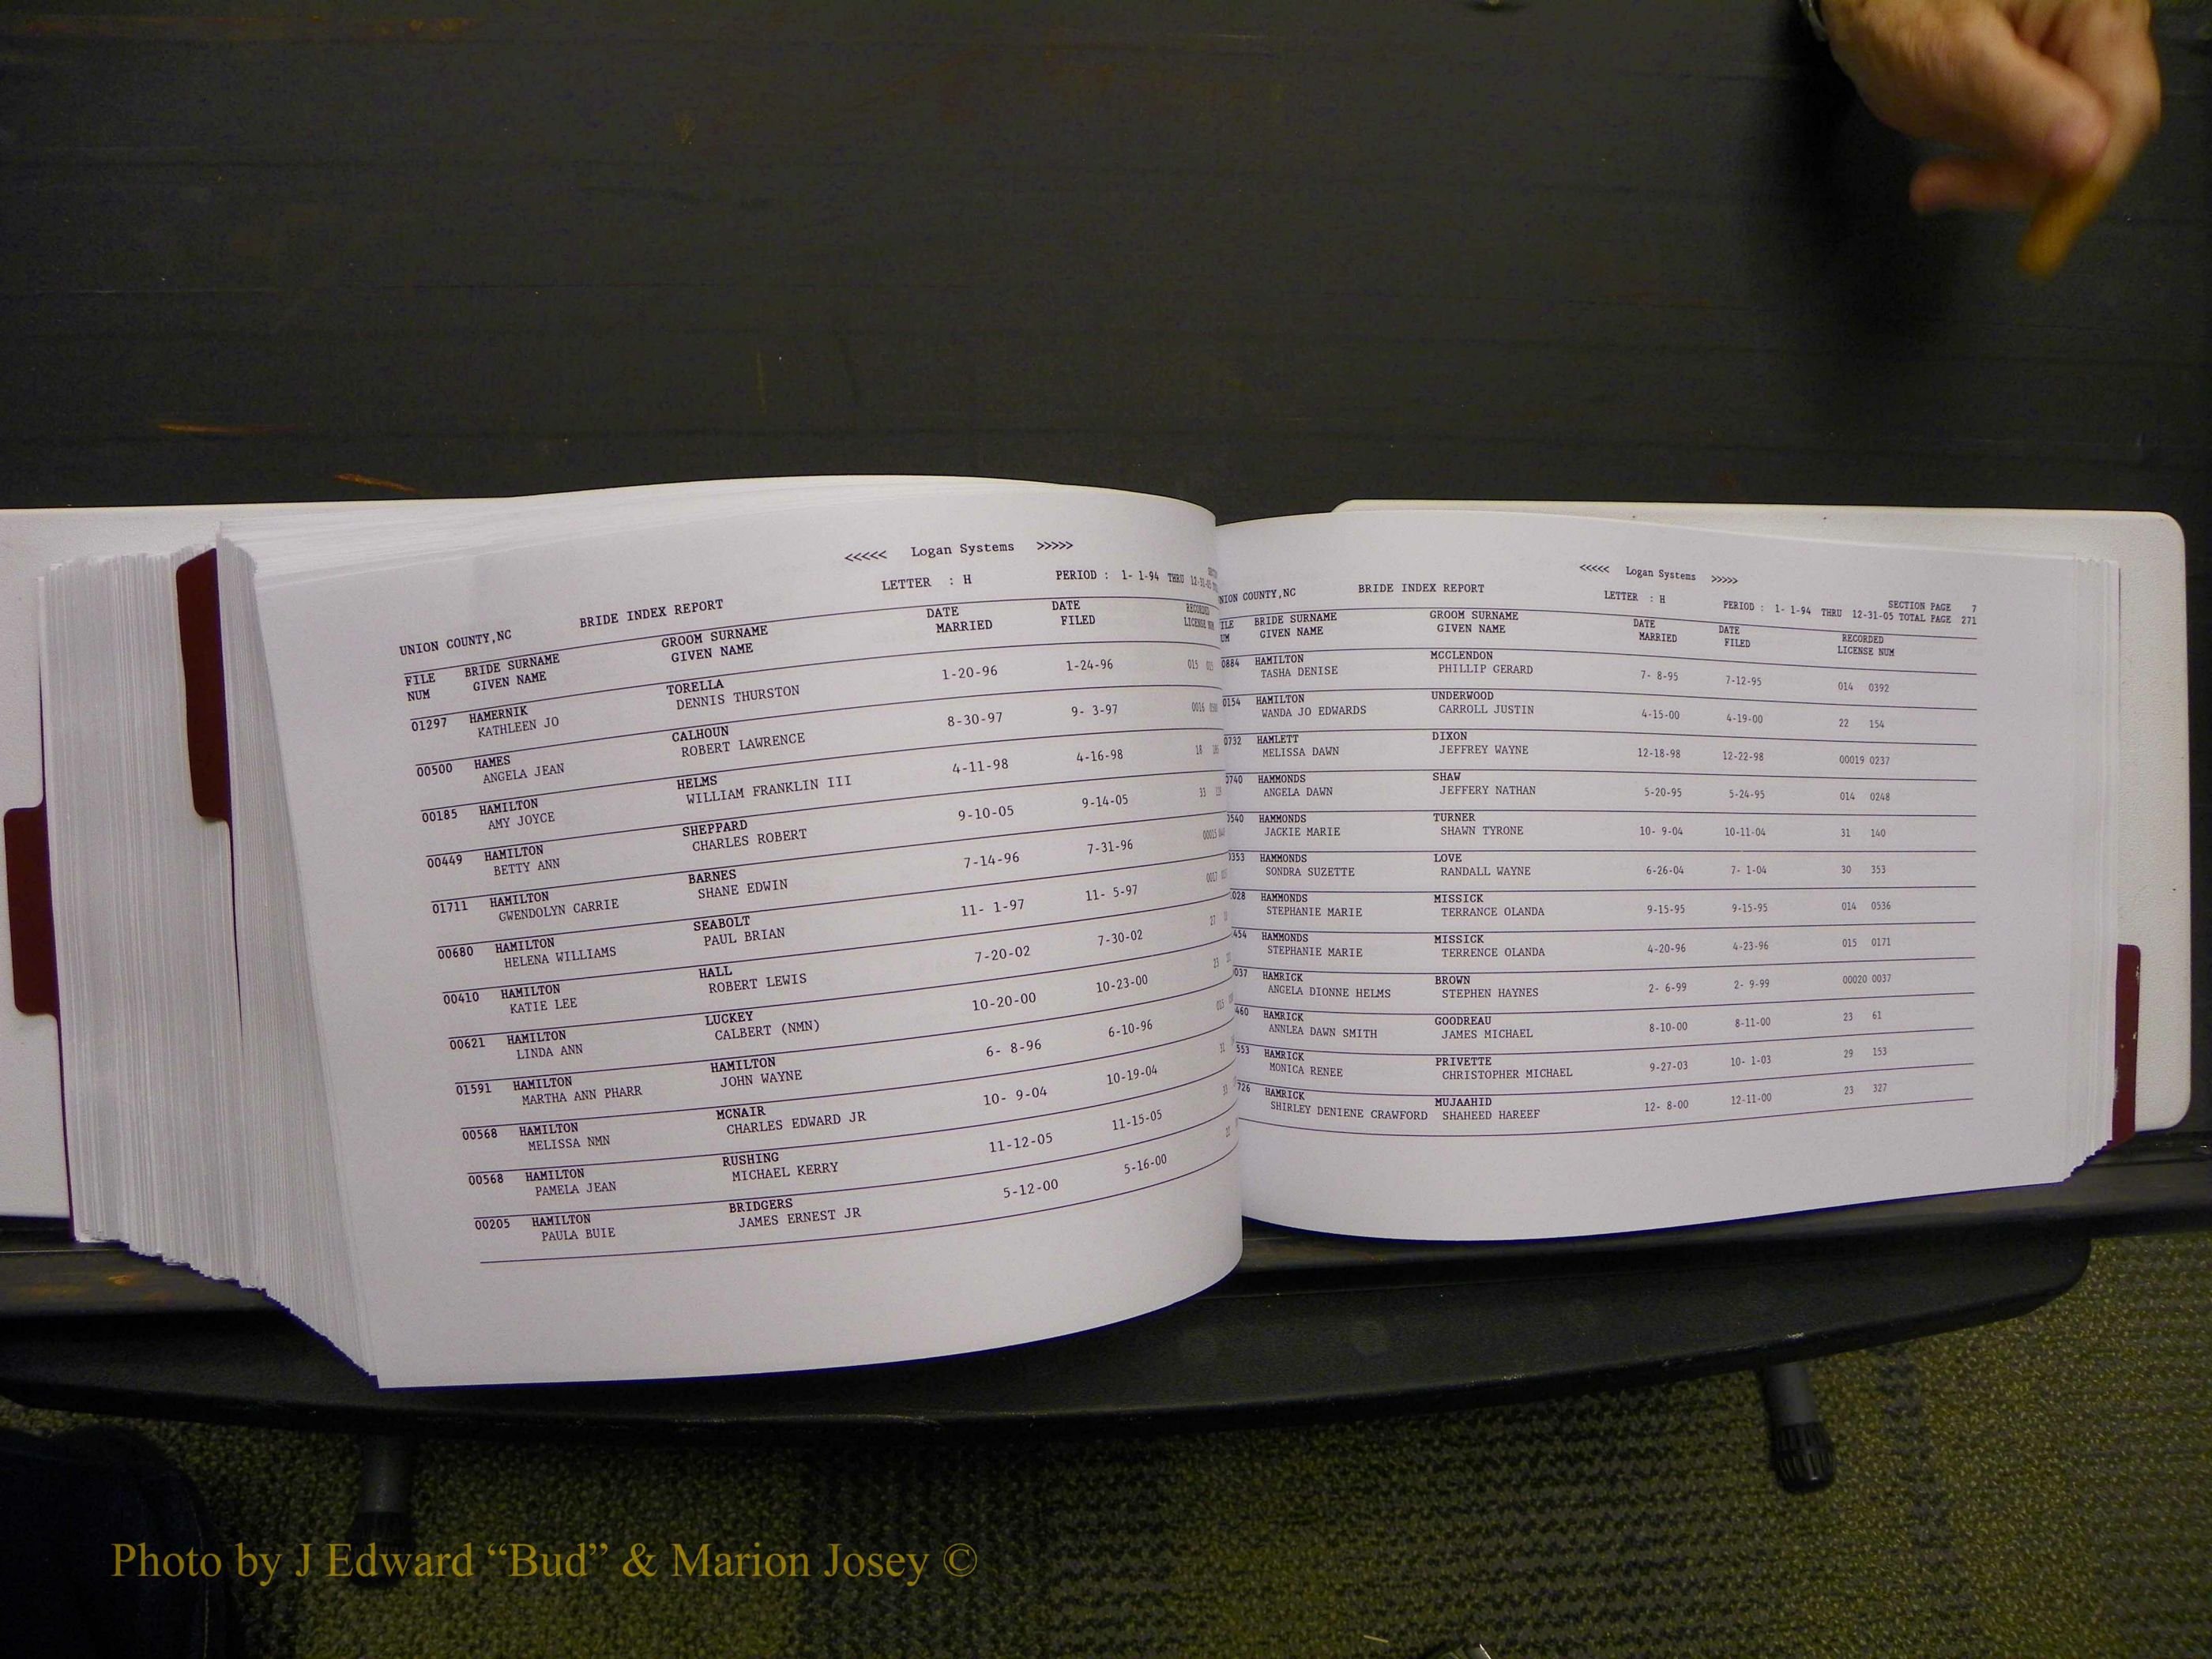 <<<<< Logan Systems >>>>>
LETTER : H PERIOD : 1- 1-94 THRU
UNION COUNTY,NC BRIDE INDEX REPORT
FILE NUM BRIDE SURNAME GIVEN NAME GROOM SURNAME GIVEN NAME DATE MARRIED DATE FILED RECORDED LICENSE
01297 HAMERNIK TORELLA 1-20-96 1-24-96 015
KATHLEEN JO DENNIS THURSTON
00500 HAMES CALHOUN 8-30-97 9- 3-97 0016
ANGELA JEAN ROBERT LAWRENCE
00185 HAMILTON HELMS 4-11-98 4-16-98 18
AMY JOYCE WILLIAM FRANKLIN III
00449 HAMILTON SHEPPARD 9-10-05 9-14-05 33
BETTY ANN CHARLES ROBERT
01711 HAMILTON BARNES 7-14-96 7-31-96 00015
GWENDOLYN CARRIE SHANE EDWIN
00680 HAMILTON SEABOLT 11- 1-97 11- 5-97 0017
HELENA WILLIAMS PAUL BRIAN
00410 HAMILTON HALL 7-20-02 7-30-02 27
KATIE LEE ROBERT LEWIS
00621 HAMILTON LUCKEY 10-20-00 10-23-00 23
LINDA ANN CALBERT (NMN)
01591 HAMILTON HAMILTON 6- 8-96 6-10-96 015
MARTHA ANN PHARR JOHN WAYNE
00568 HAMILTON MCNAIR 10- 9-04 10-19-04 31
MELISSA NMN CHARLES EDWARD JR
00568 HAMILTON RUSHING 11-12-05 11-15-05 33
PAMELA JEAN MICHAEL KERRY
00205 HAMILTON BRIDGERS 5-12-00 5-16-00
PAULA BUIE JAMES ERNEST JR
<<<<< Logan Systems >>>>>
NION COUNTY,NC BRIDE INDEX REPORT LETTER : H SECTION PAGE 7
PERIOD : 1- 1-94 THRU 12-31-05 TOTAL PAGE 271
ILE UM BRIDE SURNAME GIVEN NAME GROOM SURNAME GIVEN NAME DATE MARRIED DATE FILED RECORDED LICENSE NUM
0884 HAMILTON MCCLENDON 7- 8-95 7-12-95 014 0392
TASHA DENISE PHILLIP GERARD
0154 HAMILTON UNDERWOOD 4-15-00 4-19-00 22 154
WANDA JO EDWARDS CARROLL JUSTIN
0732 HAMLETT DIXON 12-18-98 12-22-98 00019 0237
MELISSA DAWN JEFFREY WAYNE
0740 HAMMONDS SHAW 5-20-95 5-24-95 014 0248
ANGELA DAWN JEFFERY NATHAN
0540 HAMMONDS TURNER 10- 9-04 10-11-04 31 140
JACKIE MARIE SHAWN TYRONE
353 HAMMONDS LOVE 6-26-04 7- 1-04 30 353
SONDRA SUZETTE RANDALL WAYNE
028 HAMMONDS MISSICK 9-15-95 9-15-95 014 0536
STEPHANIE MARIE TERRANCE OLANDA
454 HAMMONDS MISSICK 4-20-96 4-23-96 015 0171
STEPHANIE MARIE TERRENCE OLANDA
037 HAMRICK BROWN 2- 6-99 2- 9-99 00020 0037
ANGELA DIONNE HELMS STEPHEN HAYNES
460 HAMRICK GOODREAU 8-10-00 8-11-00 23 61
ANNLEA DAWN SMITH JAMES MICHAEL
553 HAMRICK PRIVETTE 9-27-03 10- 1-03 29 153
MONICA RENEE CHRISTOPHER MICHAEL
726 HAMRICK MUJAAHID 12- 8-00 12-11-00 23 327
SHIRLEY DENIENE CRAWFORD SHAHEED HAREEF
Photo by J Edward “Bud” & Marion Josey ©